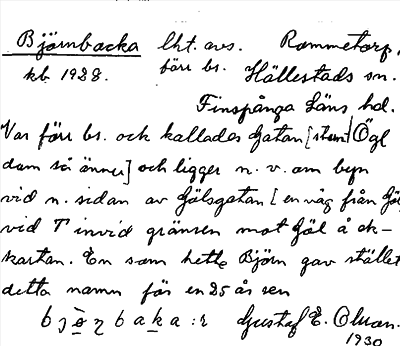 Björnbacka lht. avs. Rommetorp,
kb. 1928. förr bs. Hällestads sn.
Finspånga Läns hd.
Var förr bs. och kallades Gatan [stan Ögl
dom så ännu] och ligger n. v. om byn
vid n. sidan av Gölsgatan [en väg från Göl
vid T invid gränsen mot Göl å ek-
kartan. En som hette Björn gav stället
detta namn för en 25 år sen
bjö̀ṇbaka:r Gustaf E. Olman.
1930